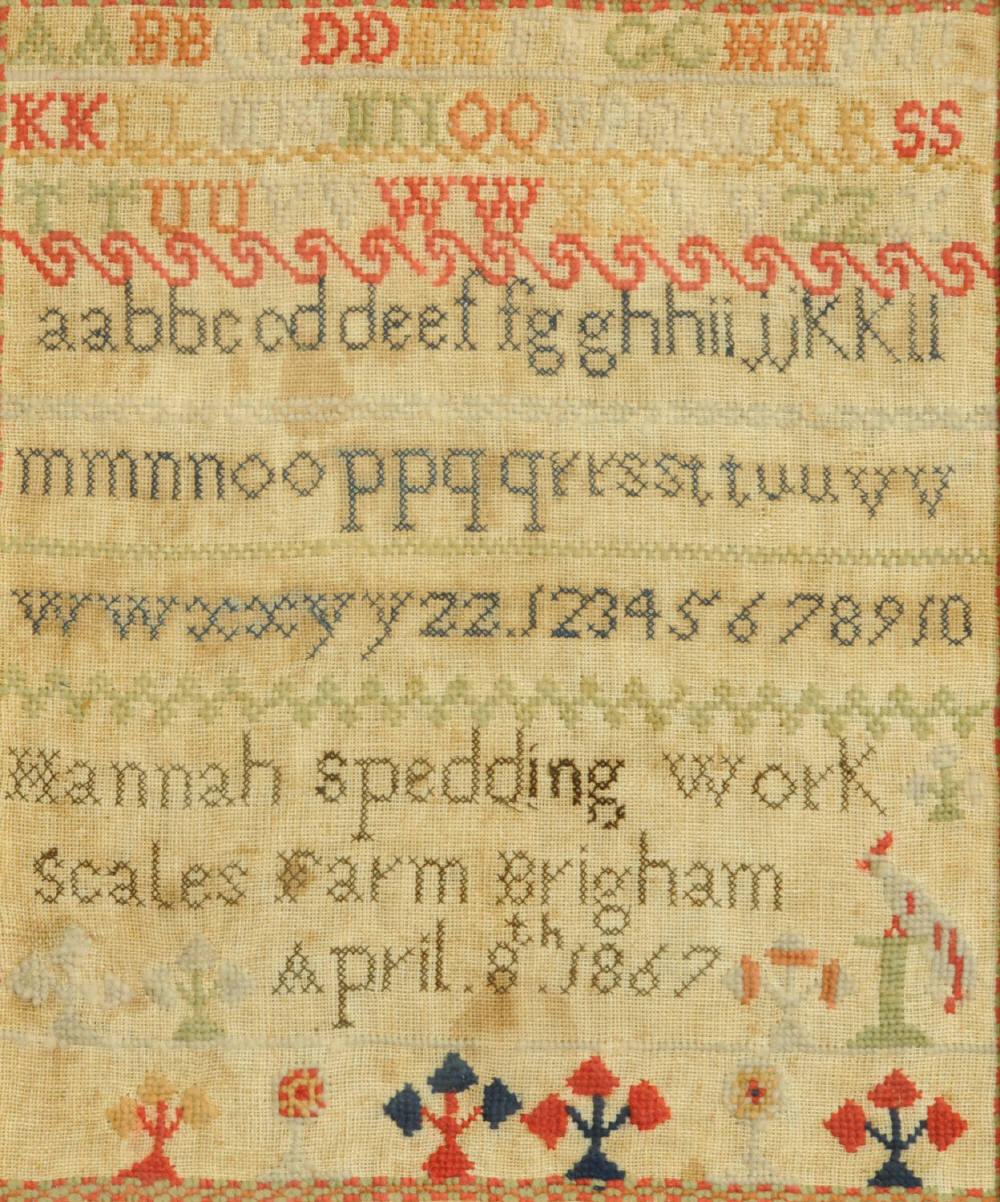 AABBCCDDEEFFGGHHII
KKLLMMNNOOPPQQRRSS
TTUUVVWWXXYYZZ
aabbccddeeffgghhiijjkkll
mmnnooppqqrrssttuuvv
wwxxyyzz.12345678910
Hannah Spedding Work
Scales Farm Brigham
April.8th.1867